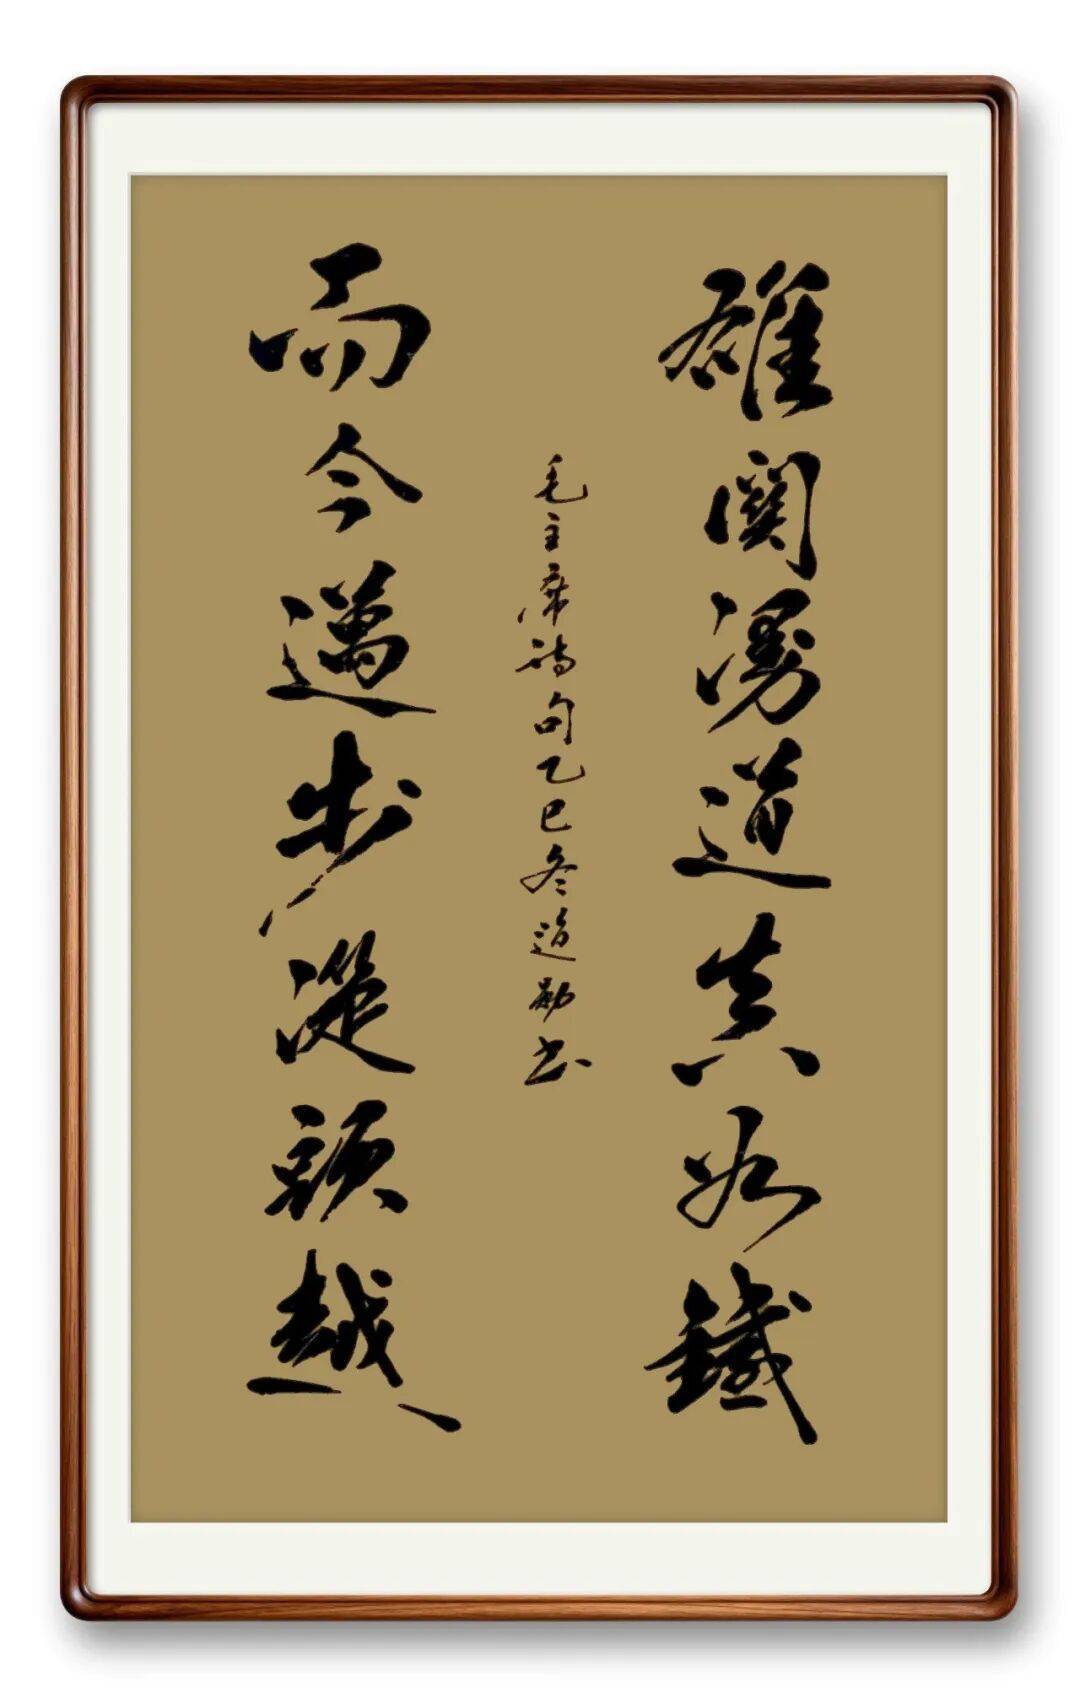 雄關漫道真如鐵
而今邁步從頭越
毛主席詩句乙巳冬道勛书